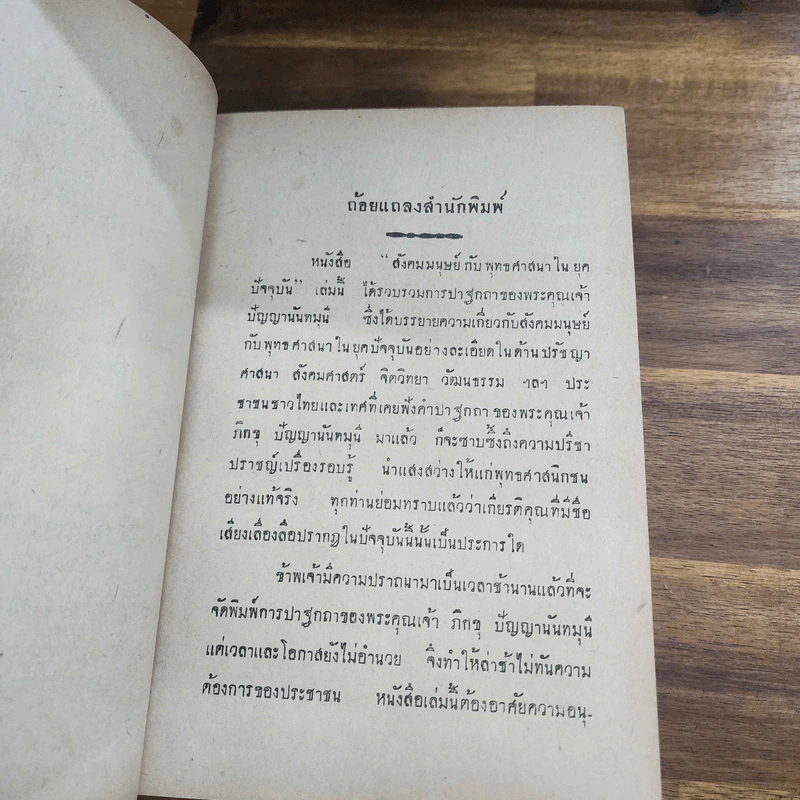 ถ้อยแถลงสำนักพิมพ์
หนังสือ "สังคมมนุษย์ กับ พุทธศาสนา ใน ยุค
ปัจจุบัน" เล่มนี้ ได้รวบรวมการปาฐกถาของพระคุณเจ้า
ปัญญานันทมุนี ซึ่งได้บรรยายความเกี่ยวกับสังคมมนุษย์
กับพุทธศาสนา ในยุคปัจจุบันอย่างละเอียดในด้านปรัชญา
ศาสนา สังคมศาสตร์ จิตวิทยา วัฒนธรรม ฯลฯ ประ
ชาชนชาวไทยและเทศที่เคยฟังคำปาฐกถา ของพระคุณเจ้า
ภิกขุ ปัญญานันทมุนี มาแล้ว ก็จะซาบซึ้งถึงความปรีชา
ปราชญ์เปรื่องรอบรู้ นำแสงสว่างให้แก่พุทธศาสนิกชน
อย่างแท้จริง ทุกท่านย่อมทราบแล้วว่าเกียรติคุณที่มีชื่อ
เสียงเลื่องลือปรากฏในปัจจุบันนี้นั้นเป็นประการใด
ข้าพเจ้ามีความปราถนามาเป็นเวลาช้านานแล้วที่จะ
จัดพิมพ์การปาฐกถาของพระคุณเจ้า ภิกขุ ปัญญานันทมุนี
แต่เวลาและโอกาสยังไม่อำนวย จึงทำให้ล่าช้าไม่ทันความ
ต้องการของประชาชน หนังสือเล่มนี้ต้องอาศัยความอนุ-